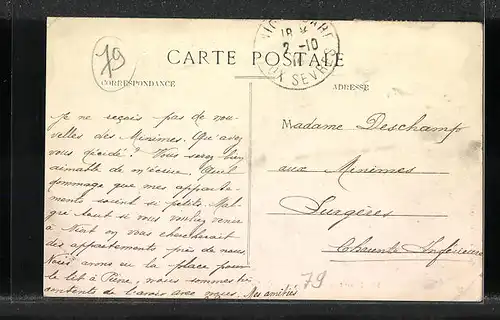 79
CARTE POSTALE
CORRESPONDANCE
ADRESSE
18
2-10
SEVRES
Je ne reçois pas de nou-
velles des Minimes. Qu'avez
vous décidé? Vous serez bien
aimable de m'écrire. Quel
dommage que mes apparte-
ments soient si petits. Mal-
gré tout si vous voulez venir
à Niort on vous chercherait
des appartements près de nous.
Nous avons eu la place pour
le lit à nous sommes
contents de l'avoir avec nous. Mes amitiés
Madame Deschamp
aux Minimes
Surgères
Charente Inférieure
79